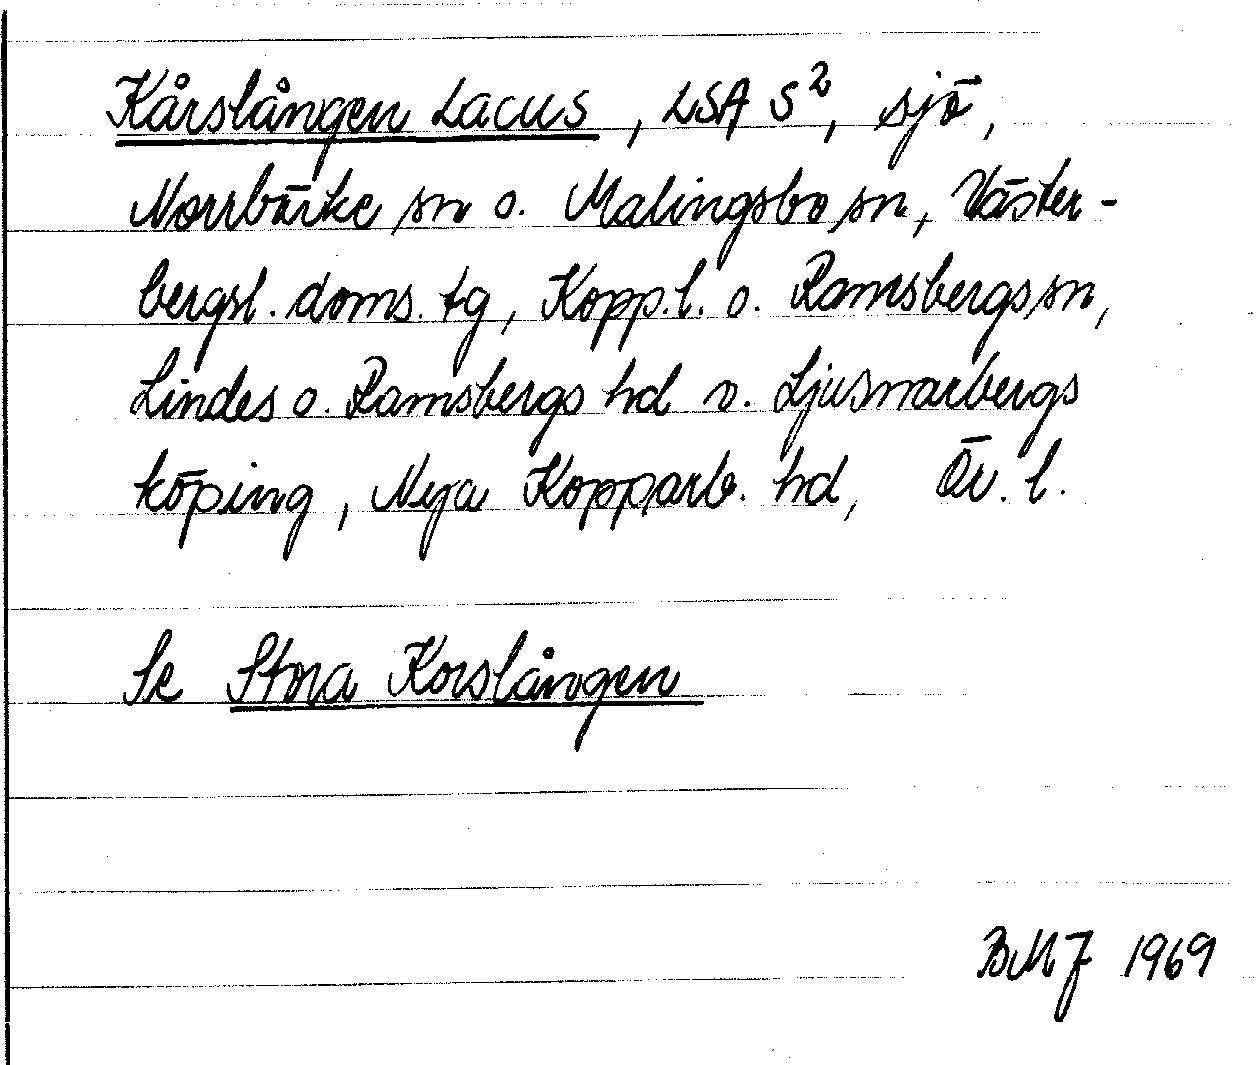 Kårslången Lacus, LSA S², sjö,
Norrbärke sn o. Malingsbo sn, Väster-
bergsl. doms. tg, Kopp.l. o. Ramsbergs sn,
Lindes o. Ramsbergs hd o. Ljusnarbergs
köping, Nya Kopparb. hd, Ör. l.
Se Stora Korslången
BMJ 1969